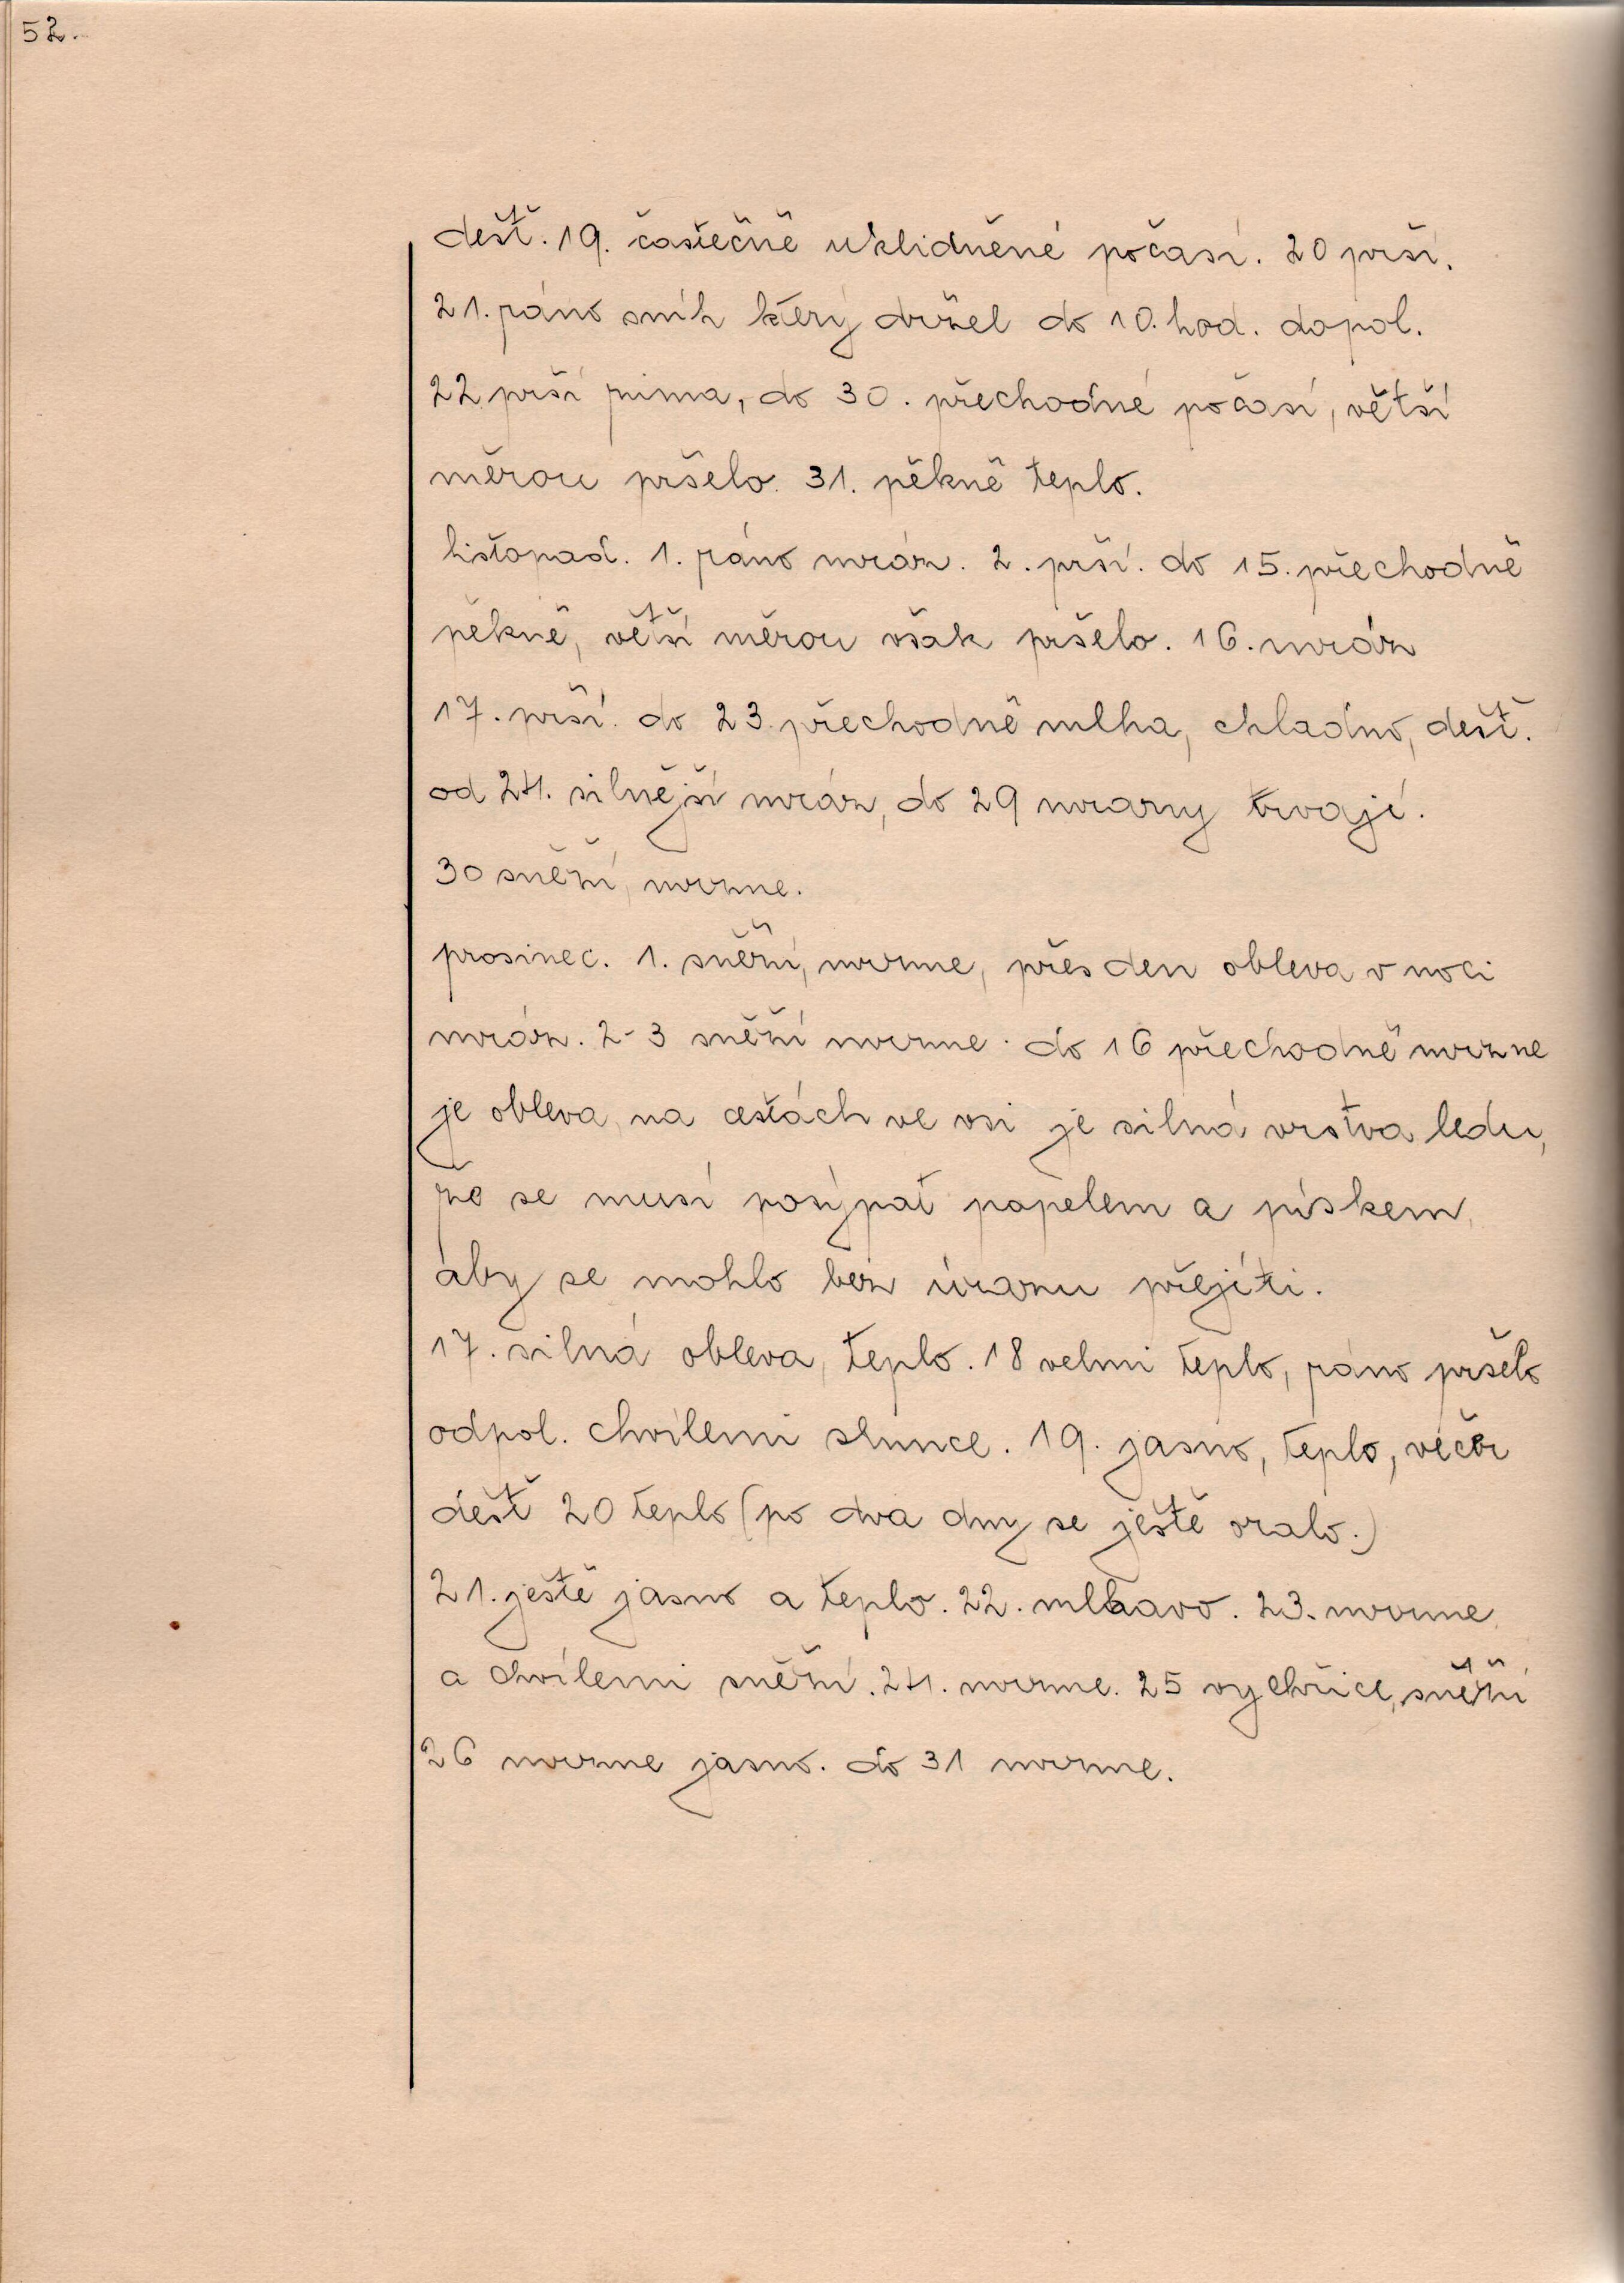 52.
dešť. 19. častečně uklidněné počasí. 20 prší.
21. ráno sníh který držel do 10. hod. dopol.
22 prší zima, do 30. přechodné počasí, větší
měrou pršelo. 31. pěkně teplo.
listopad. 1. ráno mráz. 2. prší. do 15. přechodně
pěkně, větší měrou však pršelo. 16. mráz
17. prší. do 23. přechodně mlha, chladno, dešť.
od 24. silnější mráz, do 29 mrazy trvají.
30 sněží, mrzne.
prosinec. 1. sněží, mrzne, přes den obleva v noci
mráz. 2-3 sněží mrzne. do 16 přechodně mrzne
je obleva, na cestách ve vsi je silná vrstva ledu,
že se musí posýpat popelem a pískem,
aby se mohlo bez úrazu přejíti.
17. silná obleva, teplo. 18 velmi teplo, ráno pršelo
odpol. chvílemi slunce. 19. jasno, teplo, večer
dešť 20 teplo (po dva dny se ještě oralo.)
21. ještě jasno a teplo. 22. mlhavo. 23. mrzne
a chvílemi sněží. 24. mrzne. 25 vychřice, sněží
26 mrzne jasno. do 31 mrzne.